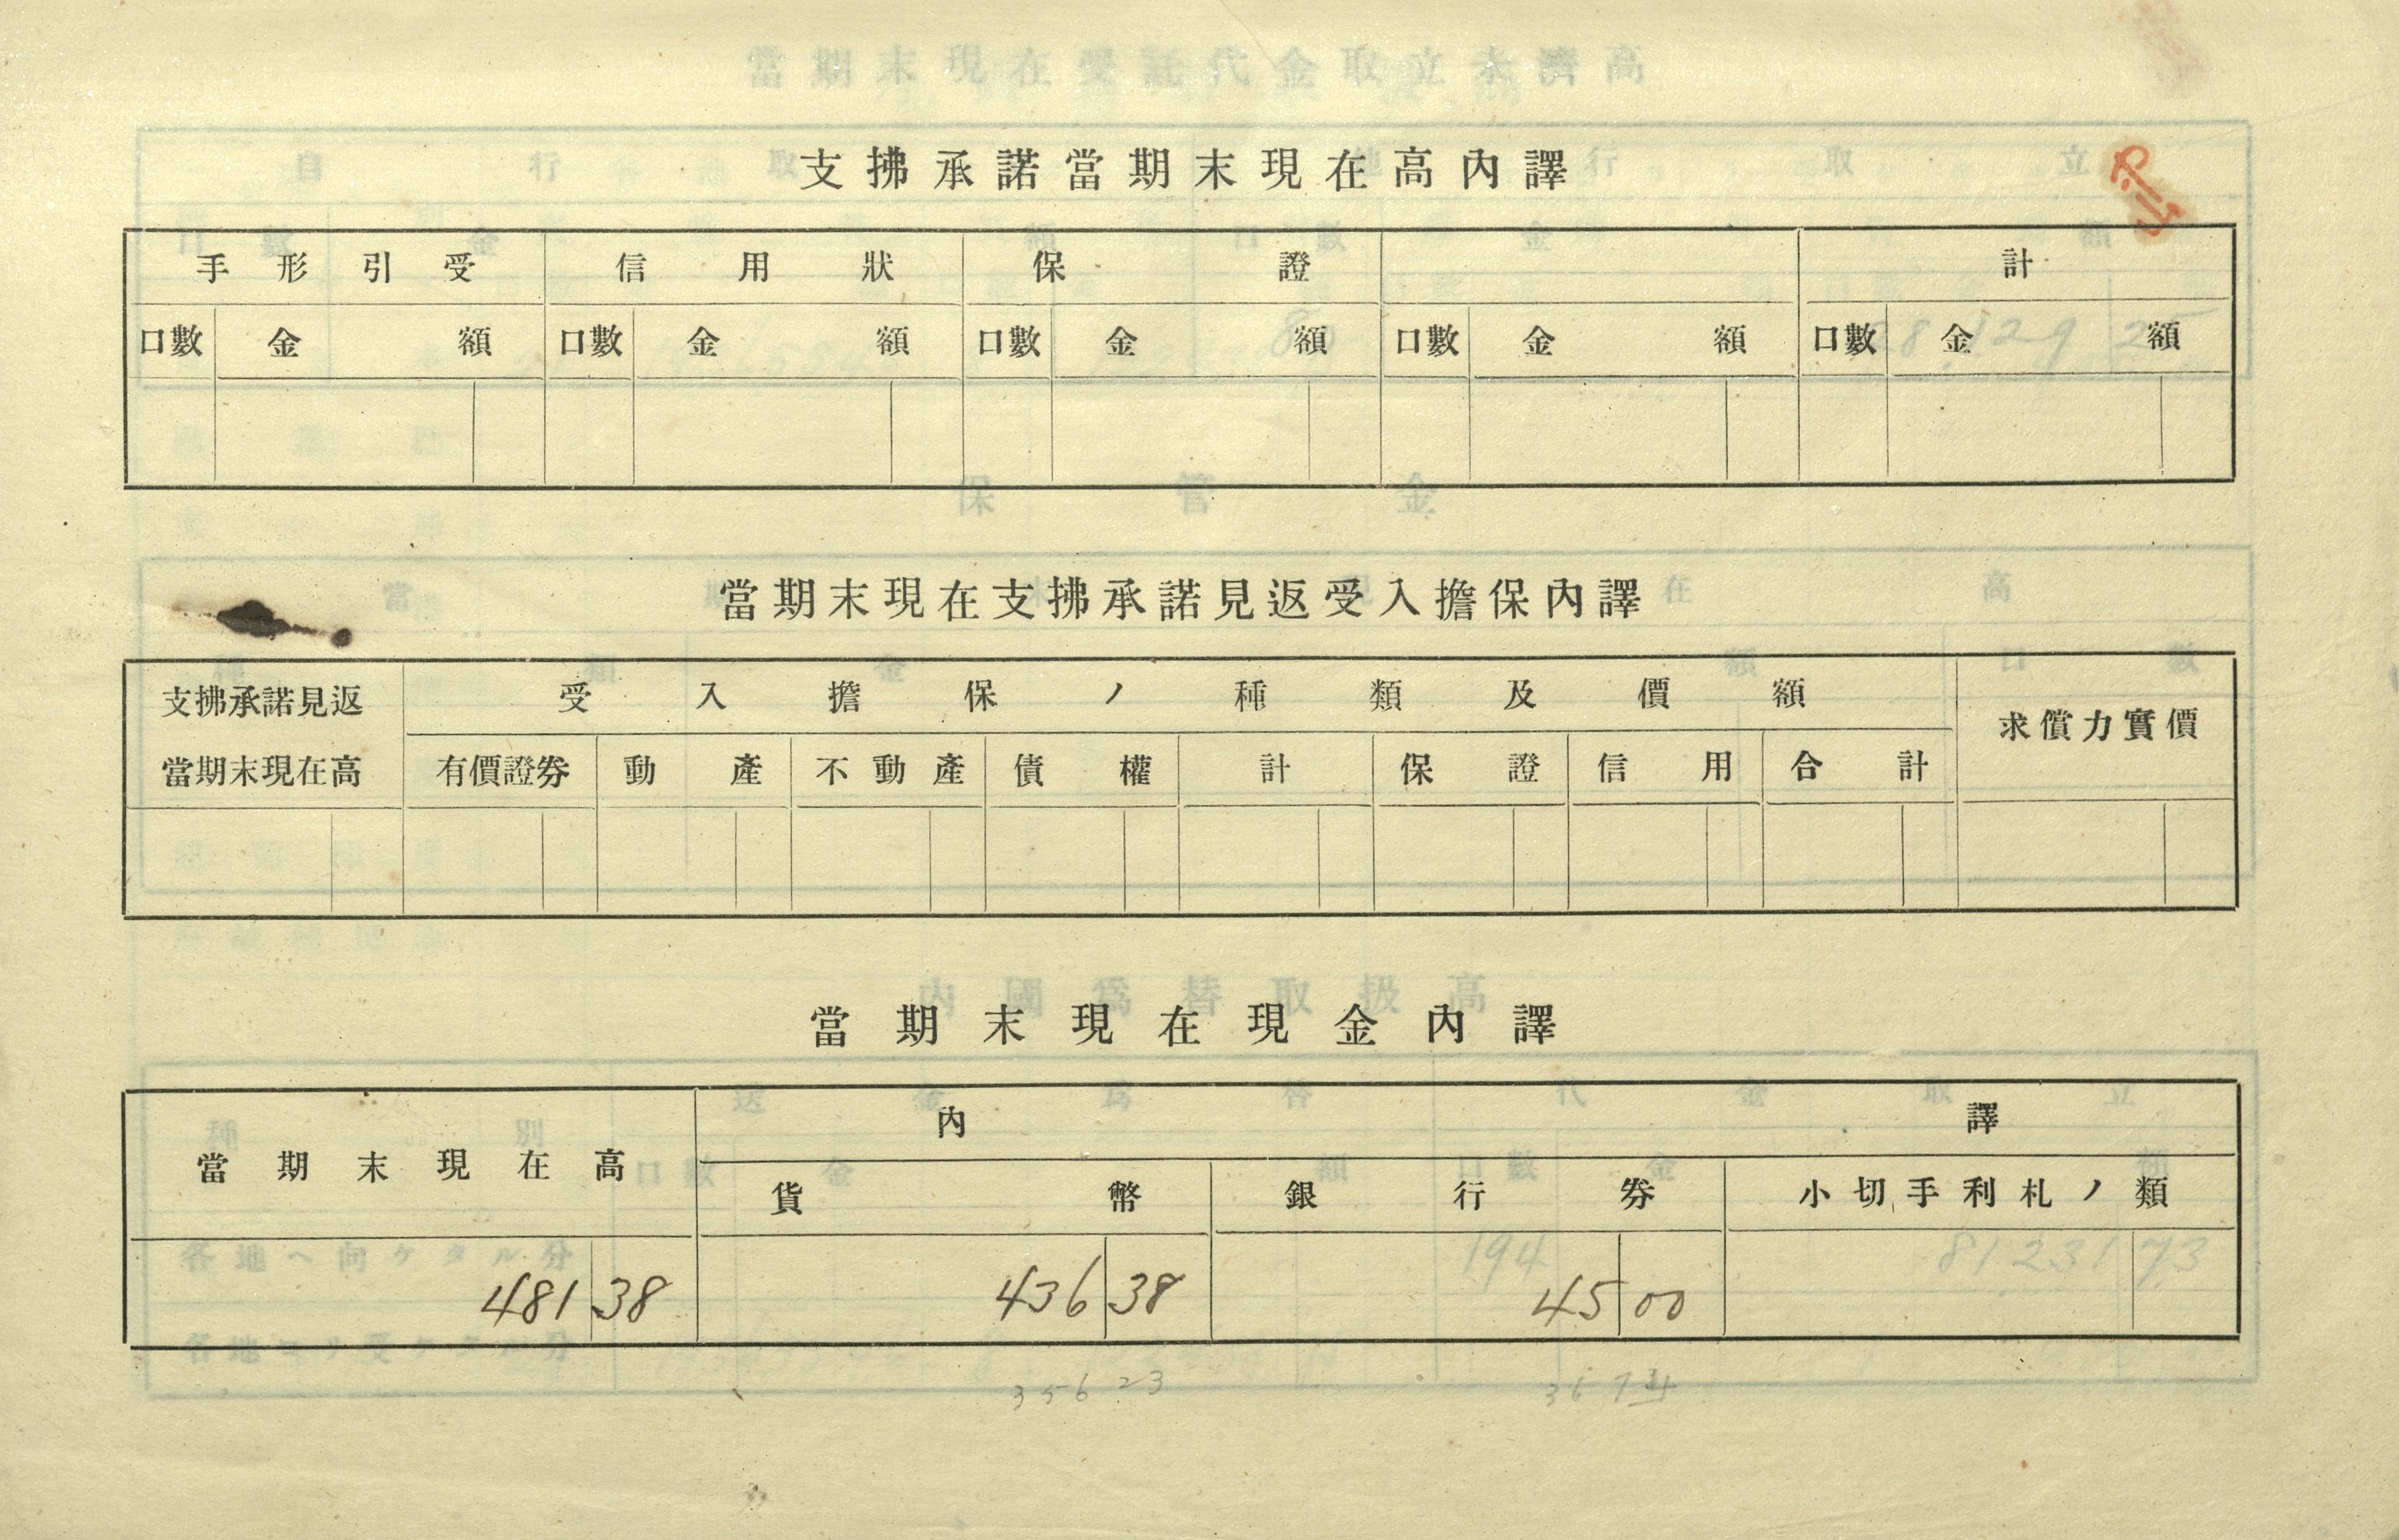 支拂承諾當期末現在高內譯
手形引受 信用狀 保證 計
口數 金額 口數 金額 口數 金額 口數 金額 口數 金額
當期末現在支拂承諾見返受入擔保內譯
支拂承諾見返 受入擔保ノ種類及價額 求償力實價
當期末現在高 有價證券 動產 不動產 債權 計 保證 信用 合計
當期末現在現金內譯
當期末現在高 內譯
貨幣 銀行券 小切手利札ノ類
481 38 436 38 45 00
356 23